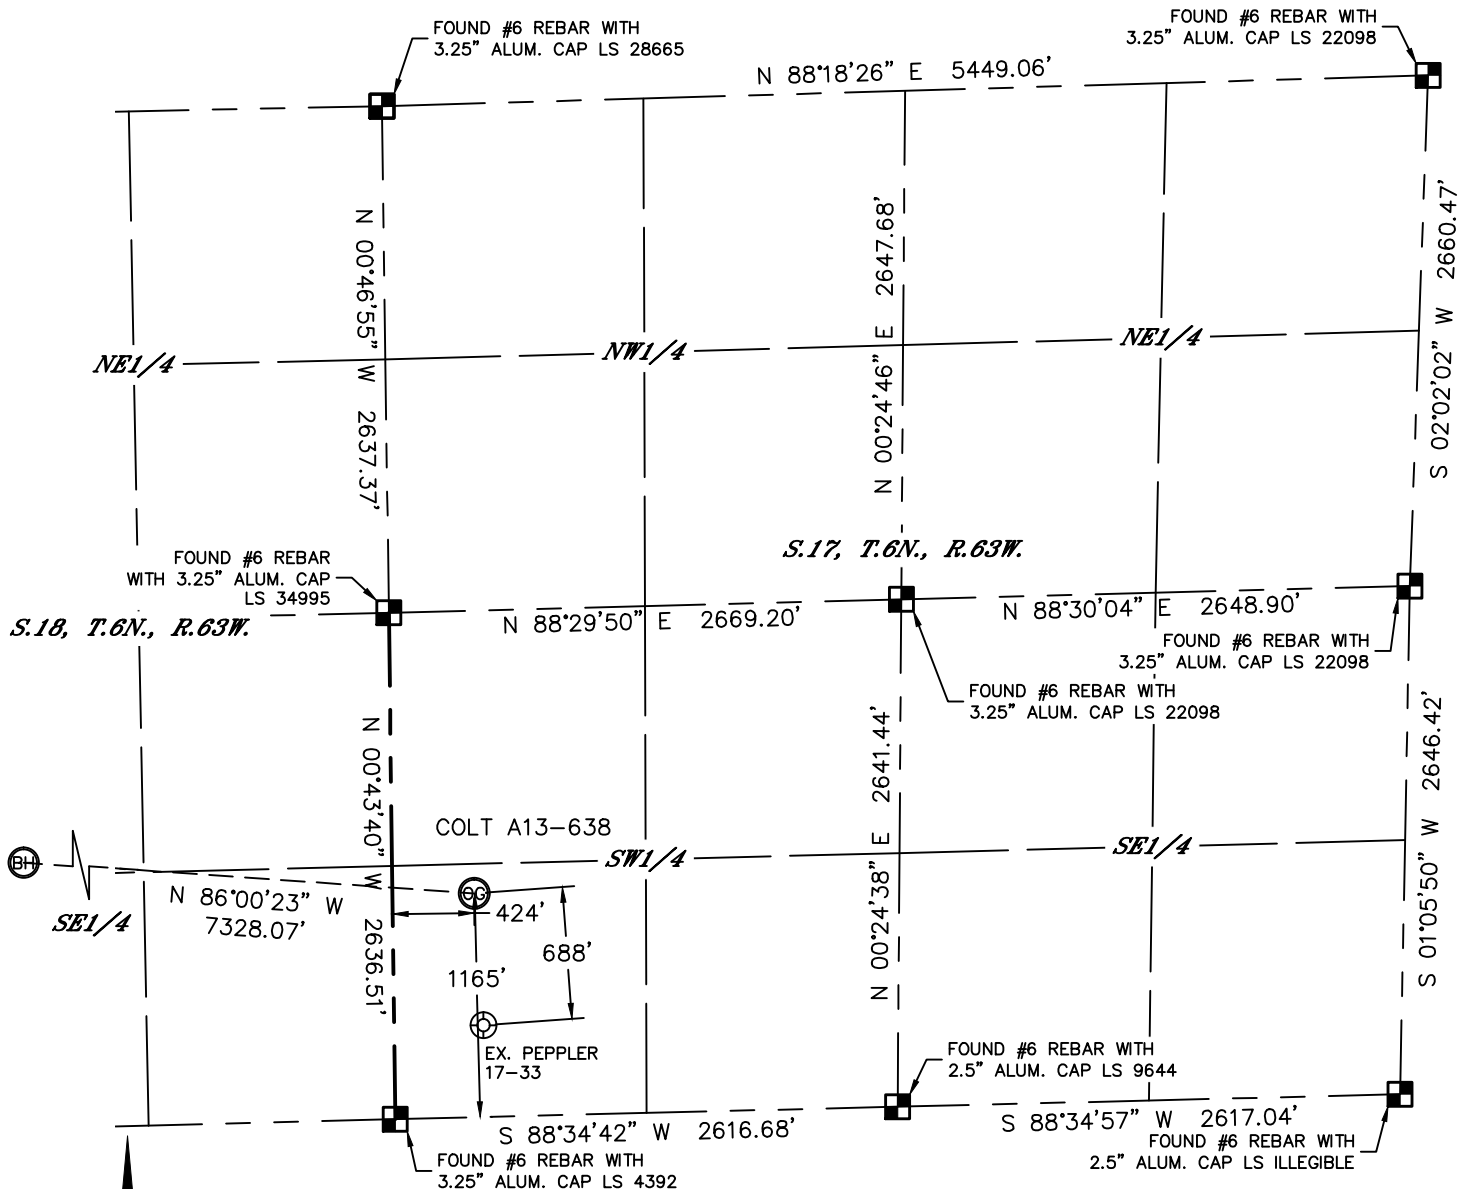 FOUND #6 REBAR WITH
3.25" ALUM. CAP LS 28665
FOUND #6 REBAR WITH
3.25" ALUM. CAP LS 22098
N 88°18'26" E 5449.06'
N 00°46'55" W 2637.37'
N 00°24'46" E 2647.68'
S 02°02'02" W 2660.47'
NE1/4
NW1/4
NE1/4
S.17, T.6N., R.63W.
FOUND #6 REBAR
WITH 3.25" ALUM. CAP
LS 34995
S.18, T.6N., R.63W.
N 88°29'50" E 2669.20'
N 88°30'04" E 2648.90'
FOUND #6 REBAR WITH
3.25" ALUM. CAP LS 22098
FOUND #6 REBAR WITH
3.25" ALUM. CAP LS 22098
N 00°43'40" W 2636.51'
N 00°24'38" E 2641.44'
S 01°05'50" W 2646.42'
COLT A13-638
SW1/4
SE1/4
BH
OG
N 86°00'23" W
7328.07'
SE1/4
424'
688'
1165'
EX. PEPPLER
17-33
FOUND #6 REBAR WITH
2.5" ALUM. CAP LS 9644
S 88°34'42" W 2616.68'
S 88°34'57" W 2617.04'
FOUND #6 REBAR WITH
2.5" ALUM. CAP LS ILLEGIBLE
FOUND #6 REBAR WITH
3.25" ALUM. CAP LS 4392